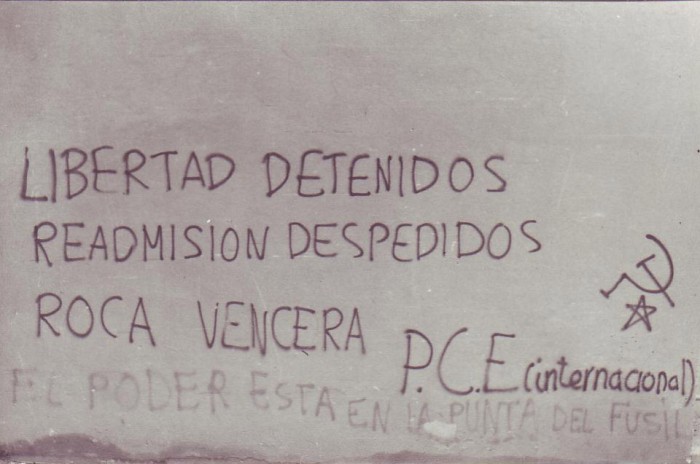 LIBERTAD DETENIDOS
READMISION DESPEDIDOS
ROCA VENCERA
P.C.E (internacional)
EL PODER ESTA EN LA PUNTA DEL FUSIL